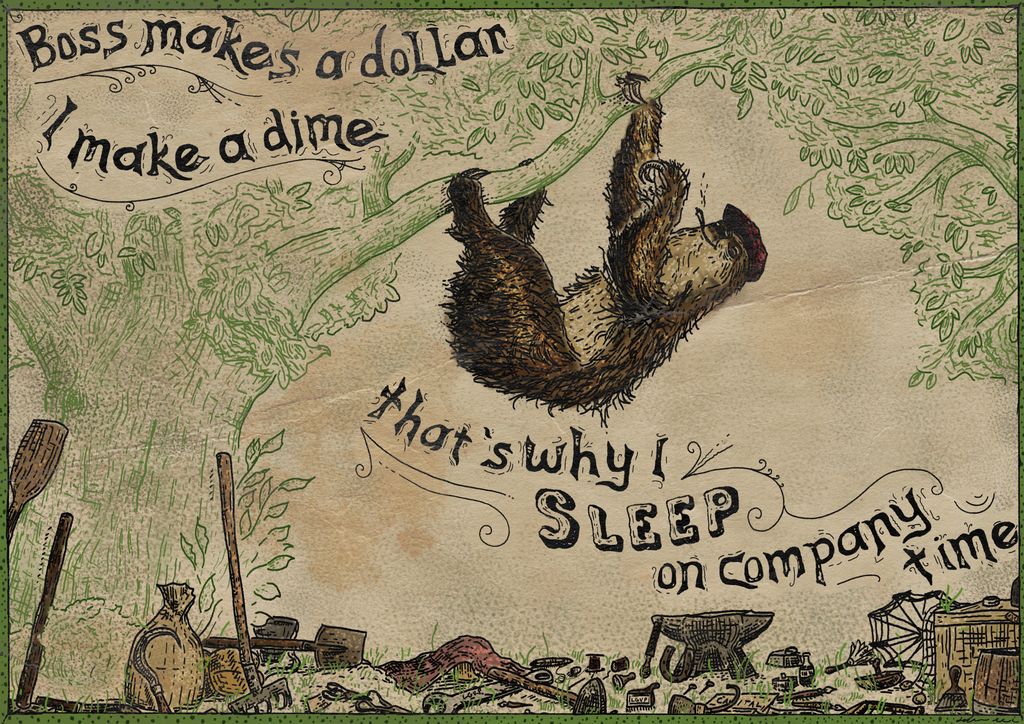 Boss makes a dollar
I make a dime
that's why I
SLEEP
on company
time